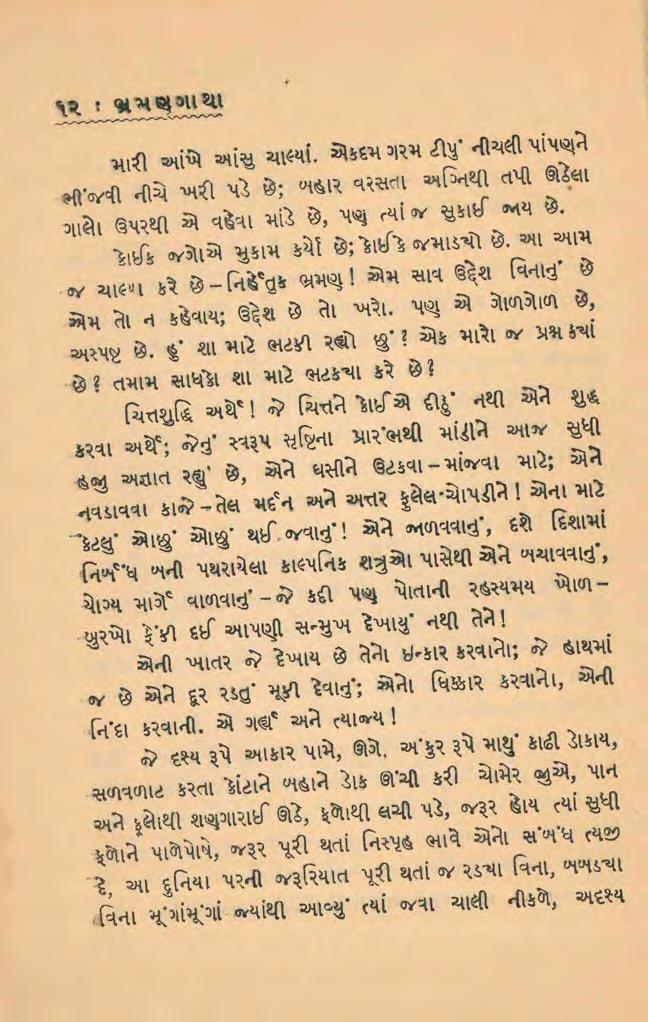 ૧૨ : ભ્રમણગાથા
મારી આંખે આંસુ ચાલ્યાં. એકદમ ગરમ ટીપું નીચલી પાંપણને
ભીંજવી નીચે ખરી પડે છે; બહાર વરસતા અગ્નિથી તપી ઊઠેલા
ગાલો ઉપરથી એ વહેવા માંડે છે, પણ ત્યાં જ સુકાઈ જાય છે.
કોઈક જગોએ મુકામ કર્યો છે; કોઈકે જમાડચો છે. આ આમ
જ ચાલ્યા કરે છે – નિર્હેતુક ભ્રમણ ! એમ સાવ ઉદ્દેશ વિનાનું છે
એમ તો ન કહેવાય; ઉદ્દેશ છે તો ખરો. પણ એ ગોળગોળ છે,
અસ્પષ્ટ છે. હું શા માટે ભટકી રહ્યો છું ? એક મારો જ પ્રશ્ન ક્યાં
છે ? તમામ સાધકો શા માટે ભટકચા કરે છે ?
ચિત્તશુદ્ધિ અર્થે ! જે ચિત્તને કોઈએ દીઠું નથી એને શુદ્ધ
કરવા અર્થે; જેનું સ્વરૂપ સૃષ્ટિના પ્રારંભથી માંડીને આજ સુધી
હજી અજ્ઞાત રહ્યું છે, એને ઘસીને ઉટકવા – માંજવા માટે; એને
નવડાવવા કાજે – તેલ મર્દન અને અત્તર ફુલેલ ચોપડીને ! એના માટે
કેટલું ઓછું ઓછું થઈ જવાનું ! એને જાળવવાનું, દશે દિશામાં
નિર્બંધ બની પથરાયેલા કાલ્પનિક શત્રુઓ પાસેથી એને બચાવવાનું,
યોગ્ય માર્ગે વાળવાનું – જે કદી પણ પોતાની રહસ્યમય ખોળ –
બુરખો ફેંકી દઈ આપણી સન્મુખ દેખાયું નથી તેને !
એની ખાતર જે દેખાય છે તેનો ઇન્કાર કરવાનો; જે હાથમાં
જ છે એને દૂર રડતું મૂકી દેવાનું; એનો ધિક્કાર કરવાનો, એની
નિંદા કરવાની. એ ગર્હ્ય અને ત્યાજ્ય !
જે દૃશ્ય રૂપે આકાર પામે, ઊગે. અંકુર રૂપે માથું કાઢી ડોકાય,
સળવળાટ કરતા કોંટાને બહાને ડોક ઊંચી કરી ચોમેર જુએ, પાન
અને ફૂલોથી શણગારાઈ ઊઠે, ફળોથી લચી પડે, જરૂર હોય ત્યાં સુધી
ફળોને પાળેપોષે, જરૂર પૂરી થતાં નિસ્પૃહ ભાવે એનો સંબંધ ત્યજી
દે, આ દુનિયા પરની જરૂરિયાત પૂરી થતાં જ રડચા વિના, બબડચા
વિના મૂંગાંમૂંગાં જ્યાંથી આવ્યું ત્યાં જવા ચાલી નીકળે, અદૃશ્ય